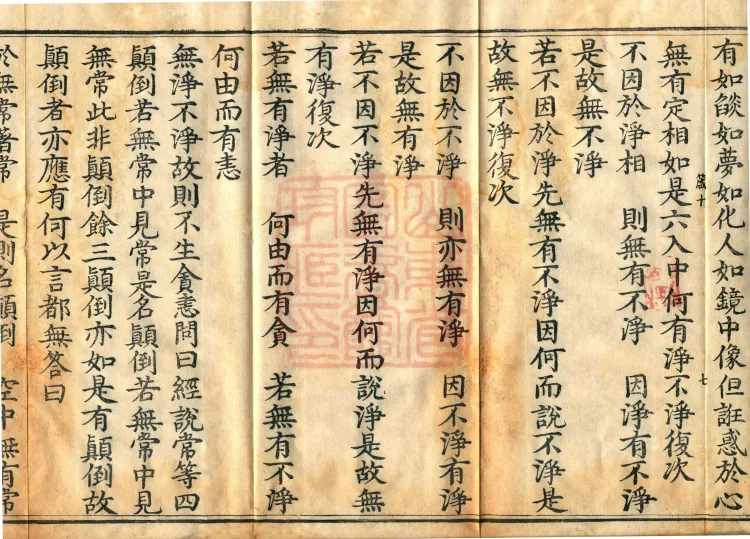 有如燄如夢如化人如鏡中像但誑惑於心
無有定相如是六入中何有淨不淨復次
不因於淨相　則無有不淨　因淨有不淨
是故無不淨
若不因於淨先無有不淨因何而說不淨是
故無不淨復次
不因於不淨　則亦無有淨　因不淨有淨
是故無有淨
若不因不淨先無有淨因何而說淨是故無
有淨復次
若無有淨者　何由而有貪　若無有不淨
何由而有恚
無淨不淨故則不生貪恚問曰經說常等四
顛倒若無常中見常是名顛倒若無常中見
無常此非顛倒餘三顛倒亦如是有顛倒故
顛倒者亦應有何以言都無答曰
於無常著常　是則名顛倒　空中無有常
七